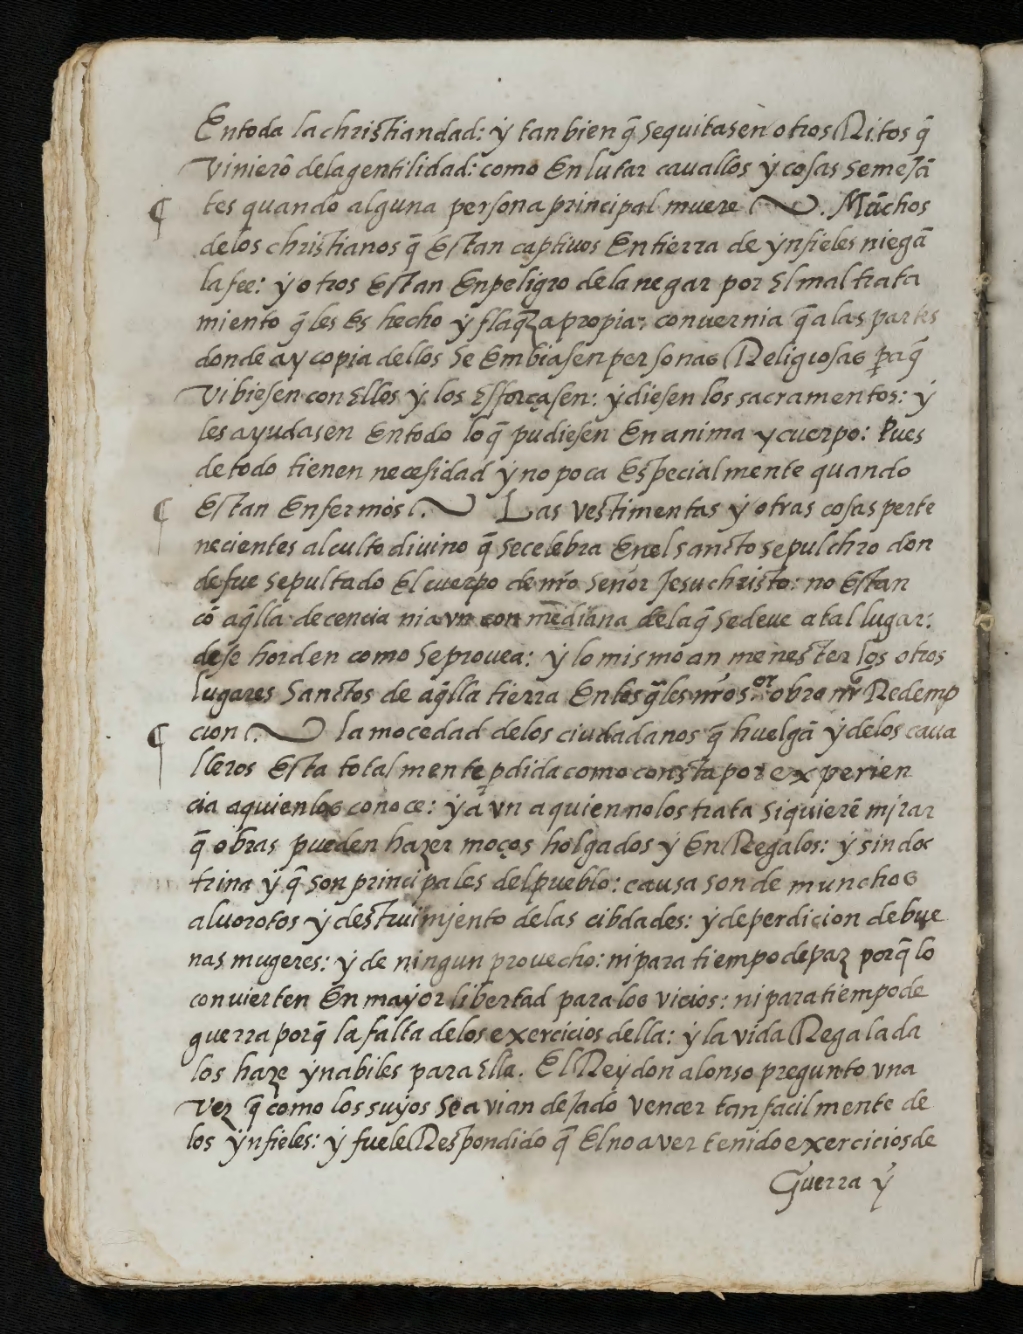 En toda la christiandad: ẏ tanbien q̃ se quitasen otros Ritos q̃
vinierõ dela gentilidad: como enlutar cauallos ẏ cosas semejã
¶ tes quando alguna persona principal muere. Mũchos
delos christianos q̃ estan captiuos en tierra de ẏnfieles niegã
la fee: ẏ otros estan en peligro dela negar por el mal trata
miento q̃ les es hecho ẏ flaq̃za propia: conuernia q̃ a las partes
donde aẏ copia dellos se embiasen personas Religiosas paq̃
vibiesen con ellos ẏ los esforçasen: ẏ diesen los sacramentos: ẏ
les aẏudasen en todo lo q̃ pudiesen en anima ẏ cuerpo: Pues
de todo tienen necesidad ẏ no poca especialmente quando
¶ estan enfermos. Las vestimentas ẏ otras cosas perte
necientes al culto diuino q̃ se celebra enel sancto sepulchro don
de fue sepultado el cuerpo de nr̃o señor Jesuchristo: no estan
cõ aq̃lla decencia ni avn con mediana dela q̃ se deue a tal lugar:
dese horden como se prouea: ẏ lo mismo an menester los otros
lugares sanctos de aq̃lla tierra en los q̃les nr̃o s.or obro nr̃a Redemp
¶ cion. la mocedad delos ciudadanos q̃ huelgã ẏ delos caua
lleros esta totalmente pdida como consta por experien
cia a quien los conoce: ẏ aũn a quien no los trata si quierẽ mirar
q̃ obras pueden hazer moços holgados ẏ en Regalos: ẏ sin doc
trina ẏ q̃ son principales del pueblo: causa son de munchos
aluorotos ẏ destruimiento de las cibdades: ẏ de perdicion de bue
nas mugeres: ẏ de ningun prouecho: ni para tiempo de paz porq̃ lo
conuierten en maẏor libertad para los vicios: ni para tiempo de
guerra porq̃ la falta delos exercicios della: ẏ la vida Regalada
los haze ẏnabiles para ella. El Reẏ don alonso pregunto vna
vez q̃ como los suẏos se avian dejado vencer tan facilmente de
los ẏnfieles: ẏ fuele Respondido q̃ el no aver tenido exercicios de
Guerra ẏ